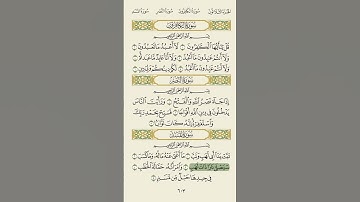 الجزء الثلاثون سورة الكافرون سورة النصر سورة المسد
سورة الكافرون
بسم الله الرحمن الرحيم
قُلْ يَٰٓأَيُّهَا ٱلْكَٰفِرُونَ ١ لَآ أَعْبُدُ مَا تَعْبُدُونَ ٢
وَلَآ أَنتُمْ عَٰبِدُونَ مَآ أَعْبُدُ ٣ وَلَآ أَنَا۠ عَابِدٌ مَّا عَبَدتُّمْ ٤
وَلَآ أَنتُمْ عَٰبِدُونَ مَآ أَعْبُدُ ٥ لَكُمْ دِينُكُمْ وَلِىَ دِينِ ٦
سورة النصر
بسم الله الرحمن الرحيم
إِذَا جَآءَ نَصْرُ ٱللَّهِ وَٱلْفَتْحُ ١ وَرَأَيْتَ ٱلنَّاسَ
يَدْخُلُونَ فِى دِينِ ٱللَّهِ أَفْوَاجًا ٢ فَسَبِّحْ بِحَمْدِ رَبِّكَ
وَٱسْتَغْفِرْهُ إِنَّهُۥ كَانَ تَوَّابًۢا ٣
سورة المسد
بسم الله الرحمن الرحيم
تَبَّتْ يَدَآ أَبِى لَهَبٍ وَتَبَّ ١ مَآ أَغْنَىٰ عَنْهُ مَالُهُۥ وَمَا كَسَبَ ٢
سَيَصْلَىٰ نَارًا ذَاتَ لَهَبٍ ٣ وَٱمْرَأَتُهُۥ حَمَّالَةَ ٱلْحَطَبِ ٤
فِى جِيدِهَا حَبْلٌ مِّن مَّسَدٍۭ ٥
٦٠٣